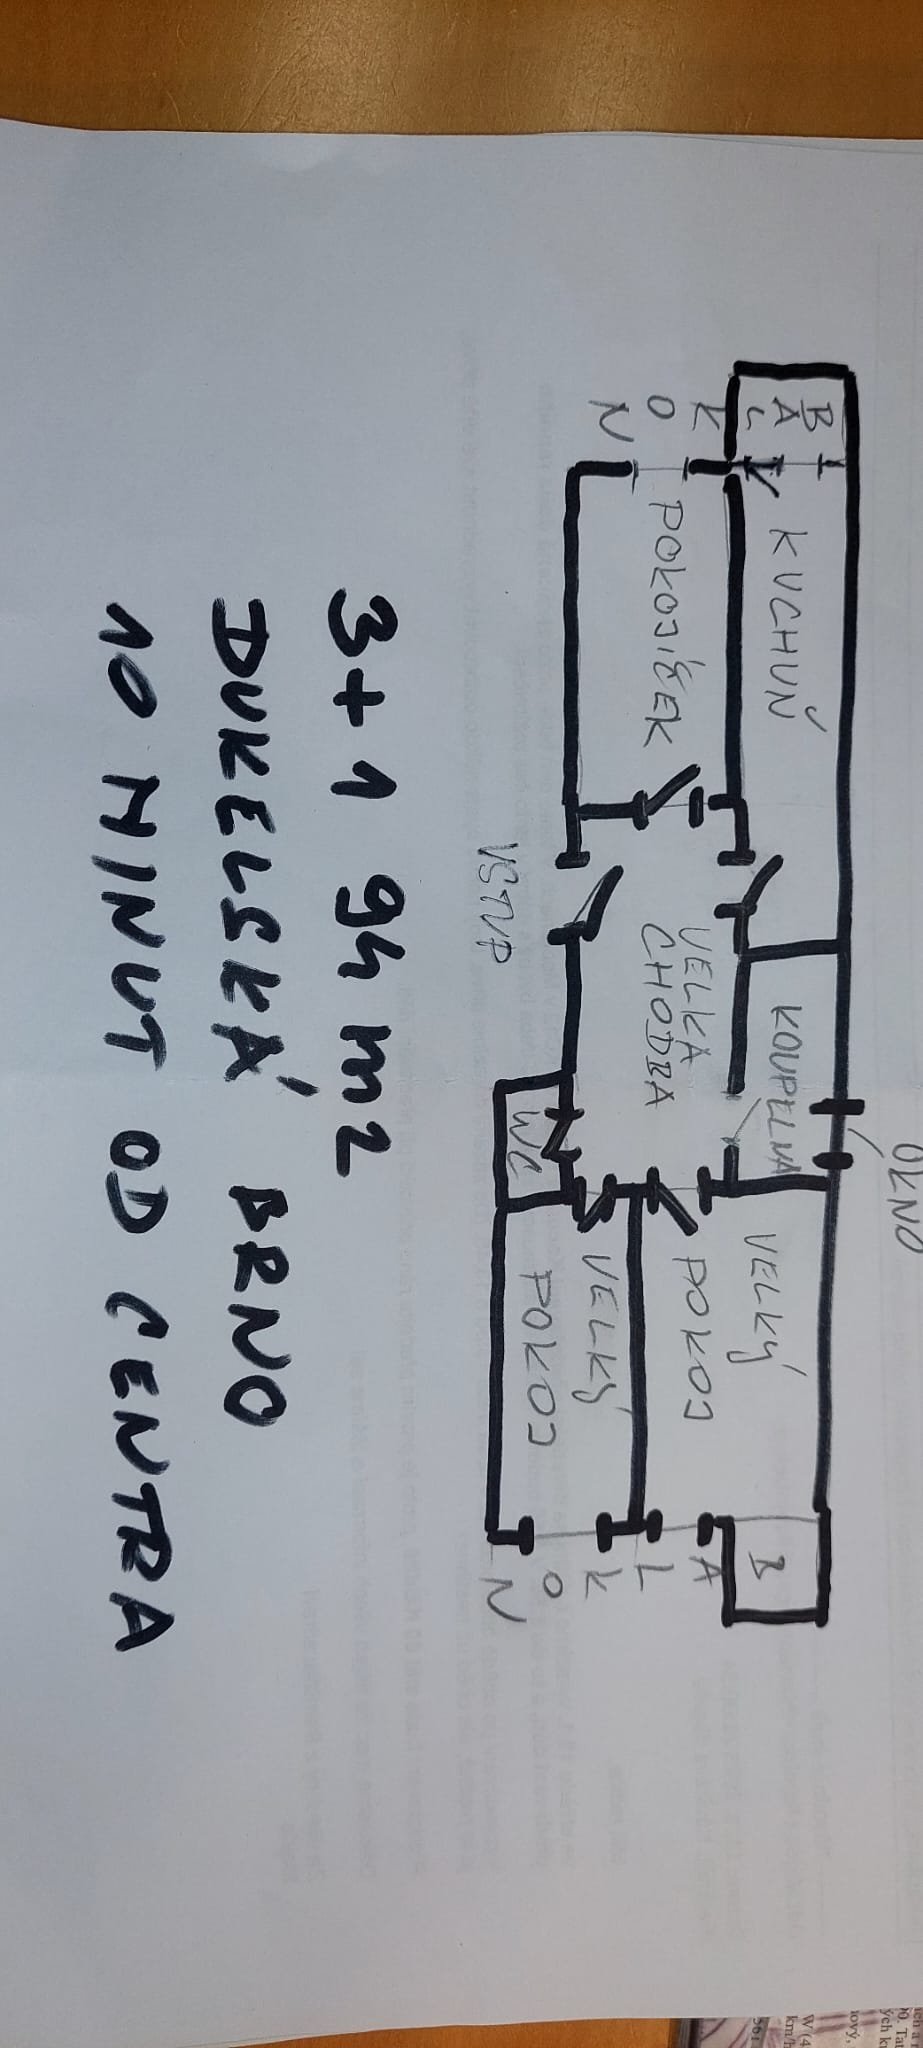 OKNO
BALKON
KUCHUŇ
KOUPELNA
VELKÝ
POKOJ
BALKON
POKOJÍČEK
VELKA
CHODBA
VELKÝ
POKOJ
WC
VSTUP
3+1 94 m2
DUKELSKÁ BRNO
10 MINUT OD CENTRA